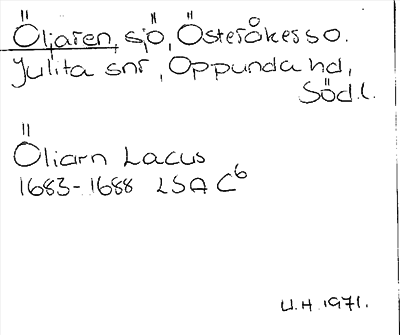 Öljaren, sjö, Österåkers so.
Julita snr, Oppunda hd,
Söd.l.
Öliarn Lacus
1683-1688 LSA C6
U.H. 1971.